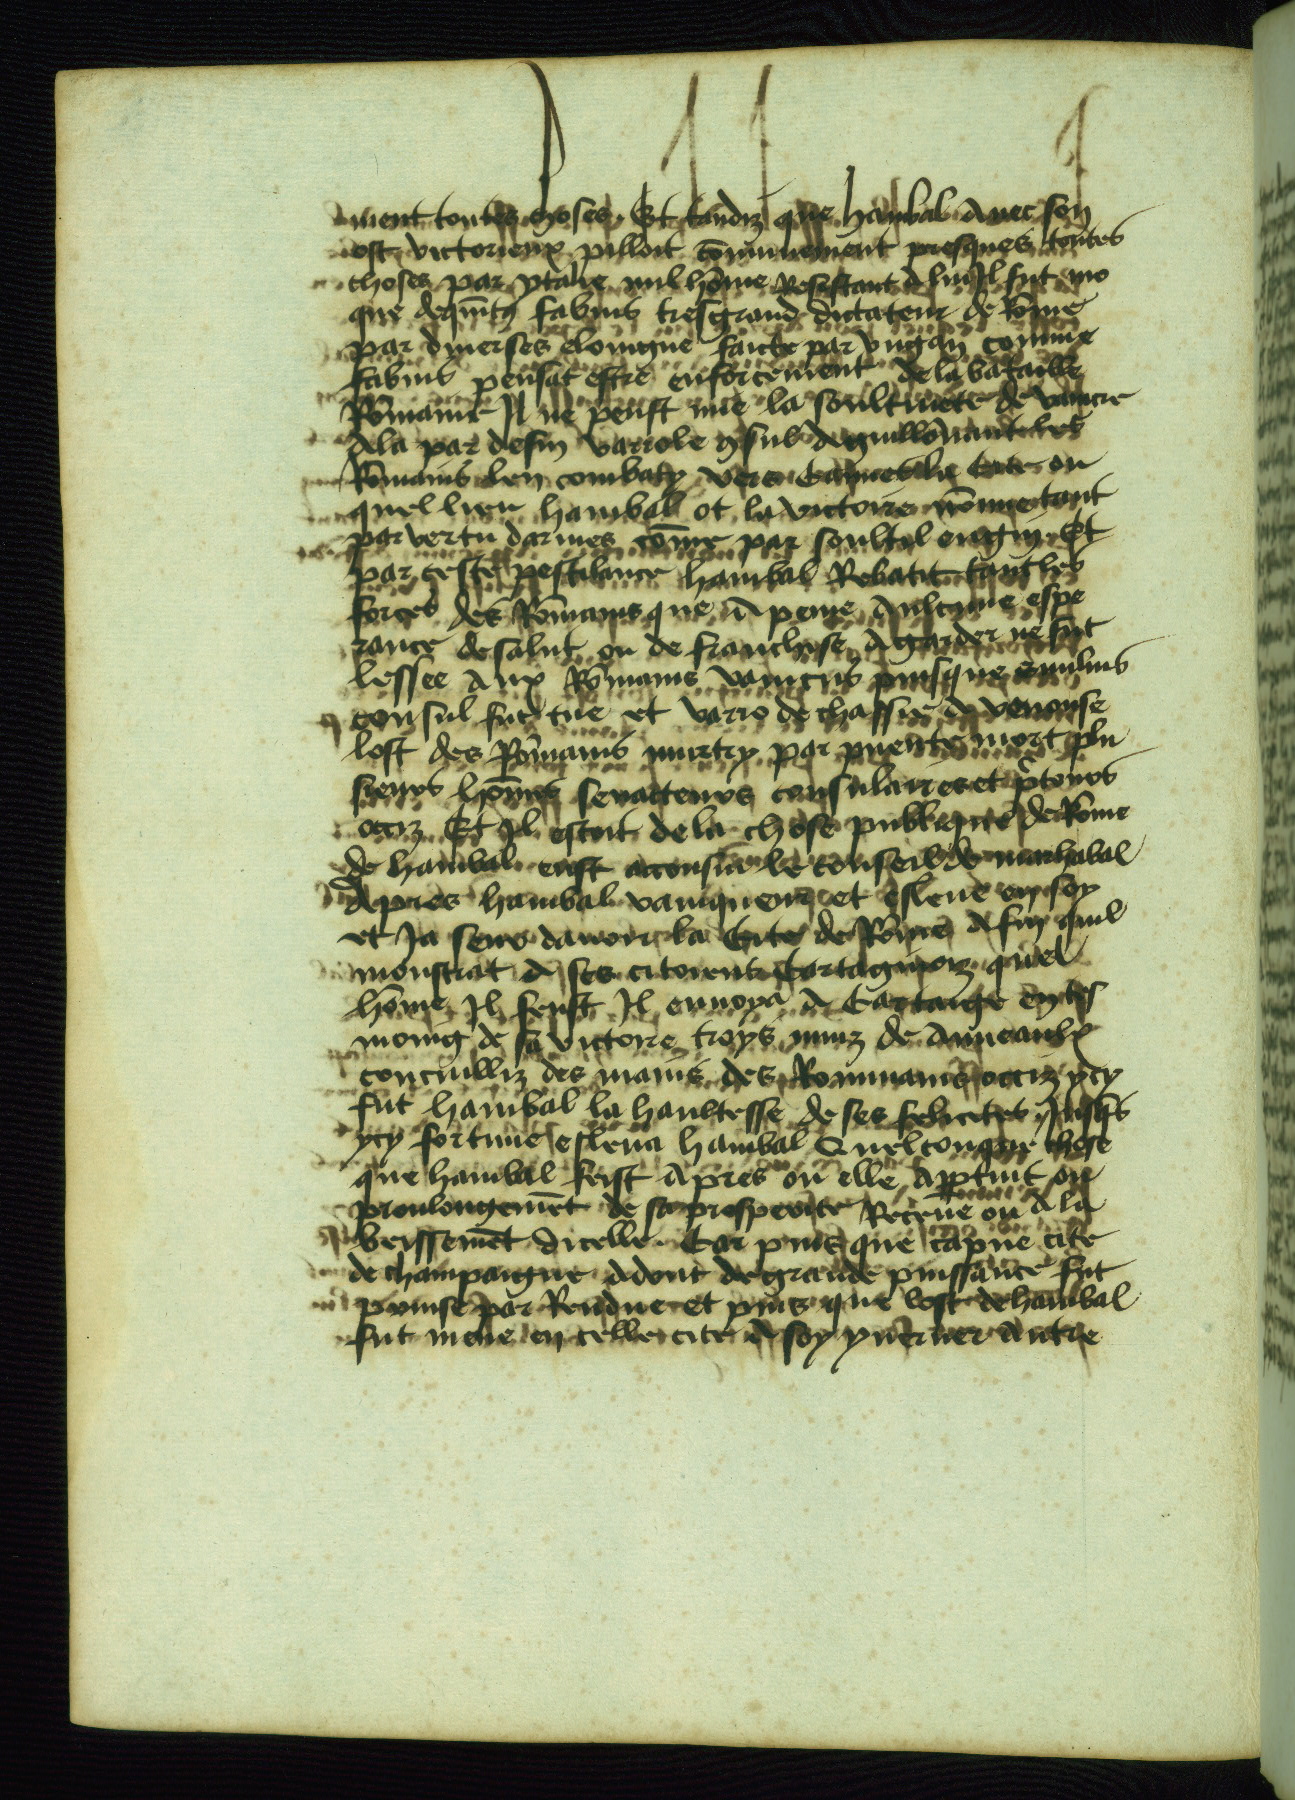 ment toutes choses. Et tandiz que hanibal Avec son
ost victorieux pilloit cōmunement presques toutes
choses par ytalie nul hōme Resistant A lui Il fut mo
que de fabius tresgrand dictateur de Rōme
par diverses eloingne faicte par comme
fabius pensat estre enforcement de la bataille
Rōmaine Il ne peust mie la soultivete de vaincre
A la par desin varrole ꝯsul Aguillōnant les
Rōmains len combaty vers Cannes la Cite ou
quel lieu hanibal ot la victoire nōmie tant
par vertu darmes cōme par soultil engin Et
par ceste pestilance hanibal Rebatit tant les
forces des Rōmains que A peine Aulcune espe
rance de salut ou de franchise A garder ne fut
lessee Aux Rōmains vaincus puisque emilius
consul fut tue et varro de chassie A venouse
lost des Rōmains murtry par puente mort plu
sieurs hōmes senatteurs consulaires et p̄tours
occiz Et Il estoit de la chose publique de Rōme
de hanibal eust acconsui le conseil de marhabal
Apres hanibal vainqueur et esleve en soy
et Ja seur davoir la Cite de Rōme A fin quil
monstrat A ses citoiens Cartaginoiz quel
hōme Il feust Il envoya A Cartaige en tes
moing de sa victoire troys muiz de Anneaulx
concuilliz des mains des Rommains occiz ycy
fut hanibal la haultesse de ses felicites Jusqs
ycy fortune esleva hanibal Quelconque chose
que hanibal feist Apres ou elle Apptint ou
proulongemēt de sa prosperite Recēue ou A la
beissemēt dicelle. Car puis que capue cite
de champaigne Adont de grande puissance fut
prinse par Rendue et puis que lost de hanibal
fut mene en celle cite A soy yverner Antre